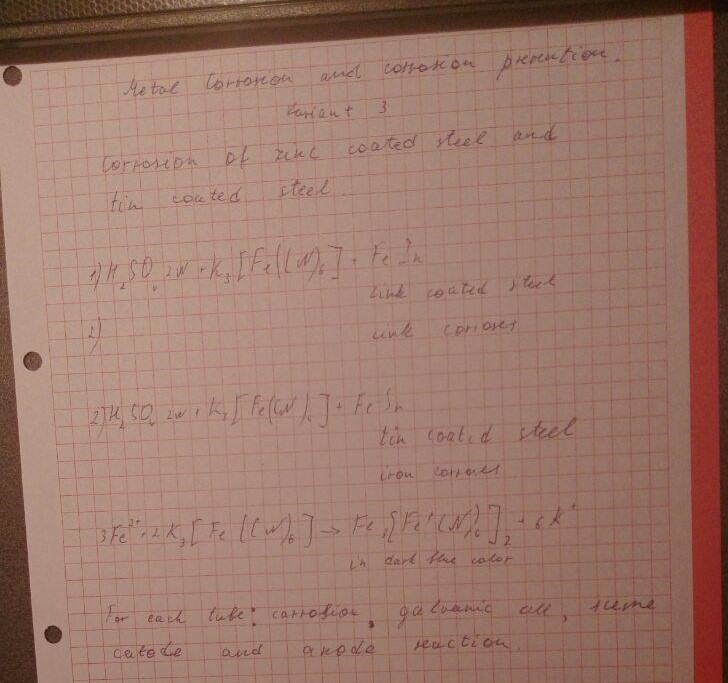 Metal Corrosion and corrosion prenution.
Variant 3
Corrosion of zinc coated steel and
tin coated steel.
1) H₂SO₄ 2N + K₃[Fe(CN)₆] + Fe Zn
zink coated steel
2) zink corroses
2) H₂SO₄ 2N + K₃[Fe(CN)₆] + Fe Sn
tin coated steel
iron corroses
3Fe²⁺ + 2K₃[Fe(CN)₆] → Fe₃[Fe(CN)₆]₂ + 6K⁺
in dark blue color
For each tube: corrosion, galvanic cell, sceme
catode and anode reaction.